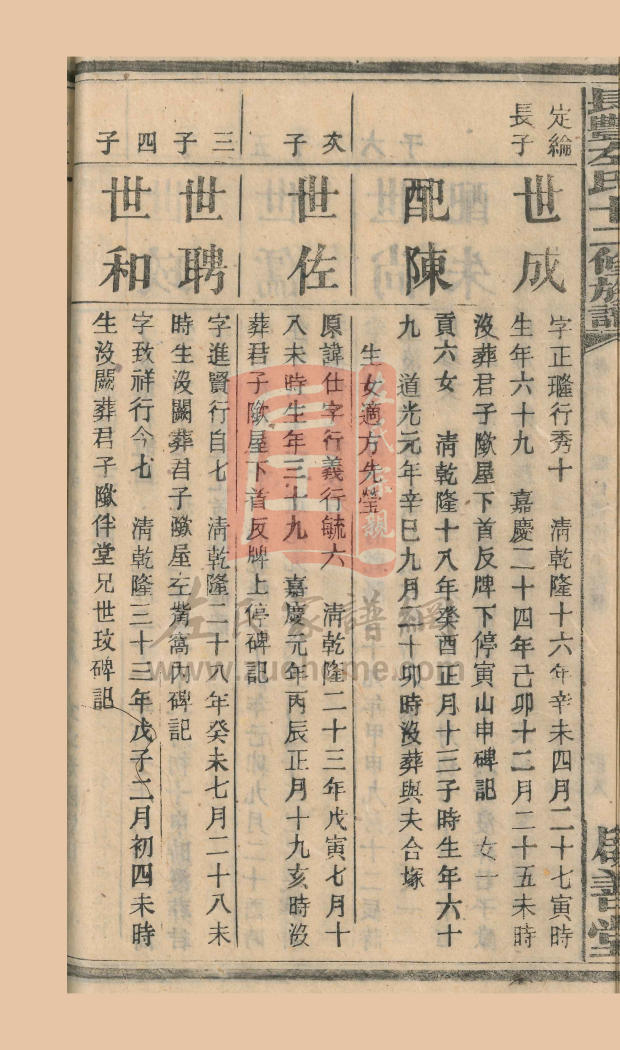 長豐左氏十二修族譜
善堂
定綸
長子
世成
字正瓏行秀十　清乾隆十六年辛未四月二十七寅時
生年六十九　嘉慶二十四年己卯十二月二十五未時
沒葬君子歘屋下首反牌下停寅山申碑記　女一
配陳
貢六女　清乾隆十八年癸酉正月十三子時生年六十
九　道光元年辛巳九月初十卯時沒葬與夫合塚
生女適方先瑩
次
子
世佐
原諱仕字行義行毓六　清乾隆二十三年戊寅七月十
八未時生年三十九　嘉慶元年丙辰正月十九亥時沒
葬君子歘屋下首反牌上停碑記
三
子
世聘
字進賢行自七　清乾隆二十八年癸未七月二十八未
時生沒闕葬君子歘屋左嘴窩內碑記
四
子
世和
字致祥行今七　清乾隆三十三年戊子二月初四未時
生沒闕葬君子歘伴堂兄世玟碑記
左氏家譜網
www.zuohome.com